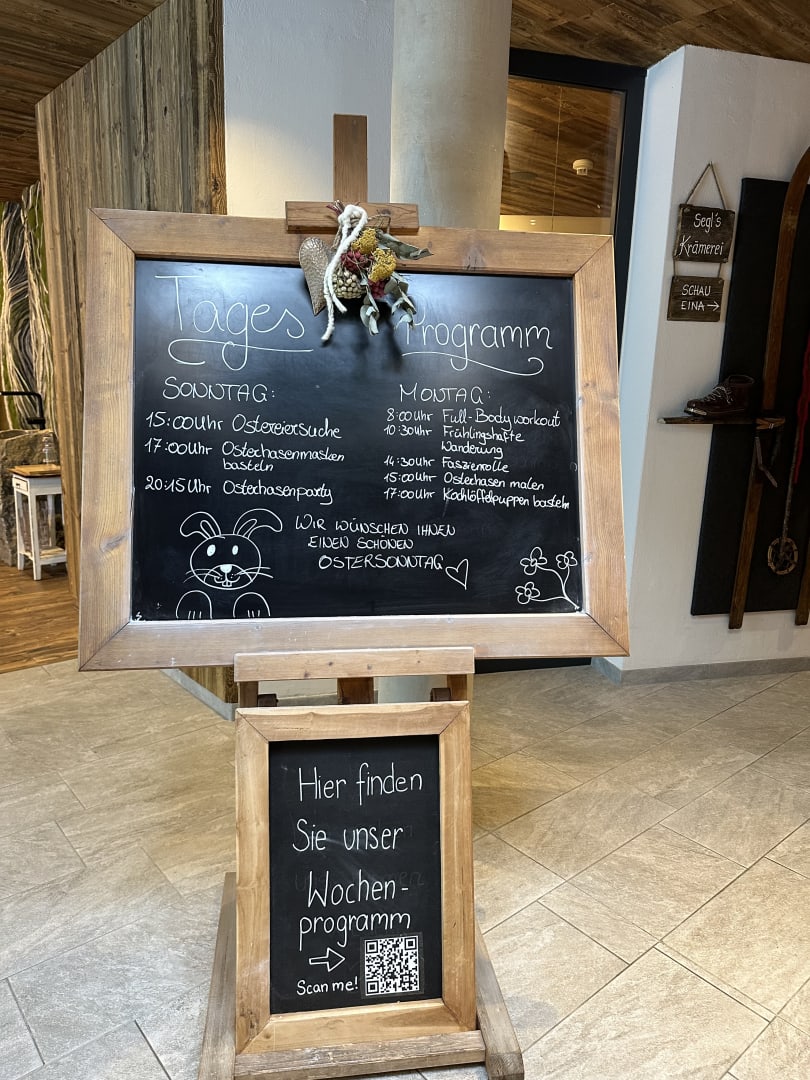 Tages Programm
SONNTAG:
15:00 Uhr Ostereiersuche
17:00 Uhr Osterhasenmasken
basteln
20:15 Uhr Osterhasenparty
MONTAG:
8:00 Uhr Full-Body workout
10:30 Uhr Frühlingshafte
Wanderung
14:30 Uhr Faszienrolle
15:00 Uhr Osterhasen malen
17:00 Uhr Kochlöffelpuppen basteln
WIR WÜNSCHEN IHNEN
EINEN SCHÖNEN
OSTERSONNTAG
Hier finden
Sie unser
Wochen-
programm
Scan me!
Segl's
Krämerei
SCHAU
EINA